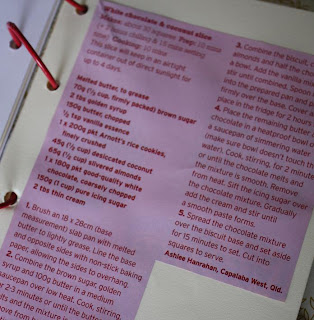 White chocolate & coconut slice
Makes: about 30 squares Prep: 10 mins
chilling & 15 mins setting
Cooking: 10 mins
This slice will keep in an airtight
container out of direct sunlight for
up to 4 days.
Melted butter, to grease
70g (⅓ cup, firmly packed) brown sugar
2 tbs golden syrup
150g butter, chopped
½ tsp vanilla essence
1 x 200g pkt Arnott's rice cookies,
finely crushed
45g (½ cup) desiccated coconut
45g (⅓ cup) slivered almonds
1 x 180g pkt good quality white
chocolate, coarsely chopped
150g (1 cup) pure icing sugar
2 tbs thin cream
1. Brush an 18 x 28cm (base
measurement) slab pan with melted
butter to lightly grease. Line the base
and opposite sides with non-stick baking
paper, allowing the sides to overhang.
2. Combine the brown sugar, golden
syrup and 100g butter in a medium
saucepan over low heat. Cook, stirring,
for 2-3 minutes or until the butter
melts and the mixture is
move from
3. Combine the biscuit,
almonds and half the
a bowl. Add the vanilla
stir until combined. Spoon
into the prepared pan and
firmly over the base. Cover and
place in the fridge for 2 hours
4. Place the remaining butter
chocolate in a heatproof bowl
a saucepan of simmering water
(make sure bowl doesn't touch the
water). Cook, stirring, for 2 minutes
or until the chocolate melts and
the mixture is smooth. Remove
from heat. Sift the icing sugar over
the chocolate mixture. Gradually
add the cream and stir until
a smooth paste forms.
5. Spread the chocolate mixture
over the biscuit base and set aside
for 15 minutes to set. Cut into
squares to serve.
Ashlee Hanrahan, Capalaba West, Qld.